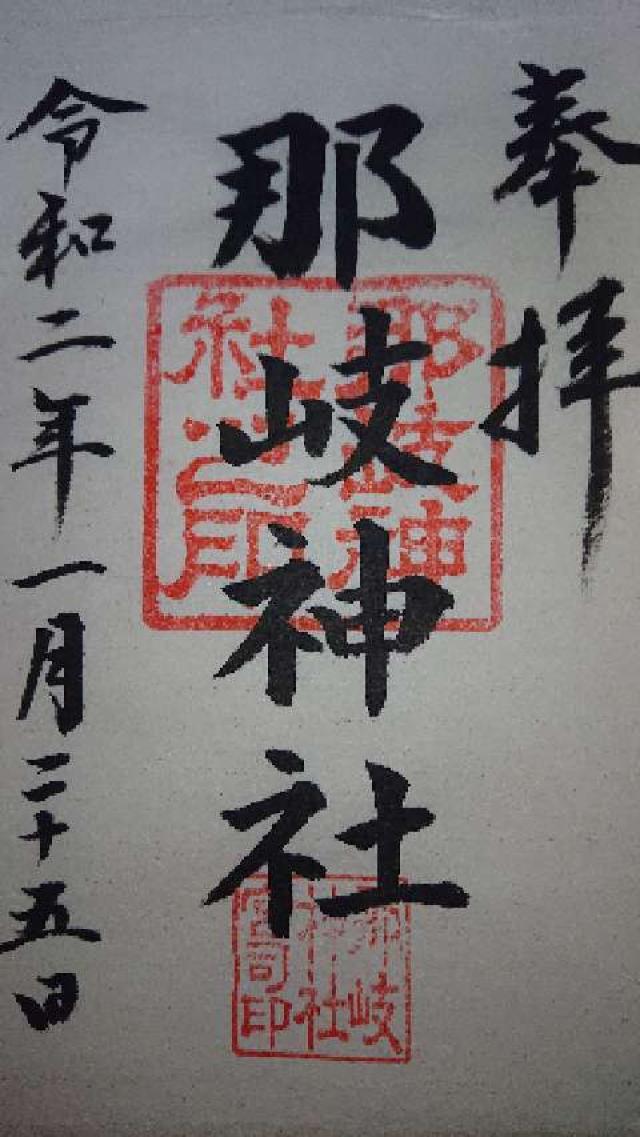 奉拝
那岐神社
那岐神社之印
那岐神社宮司印
令和二年一月二十五日